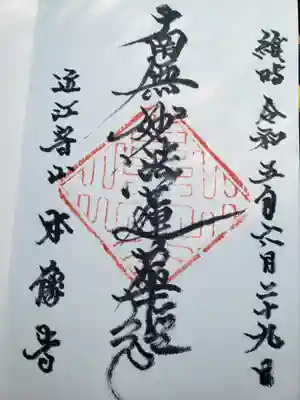 維時令和五年六月二十九日
南無妙法蓮華経
近江寺山本像寺